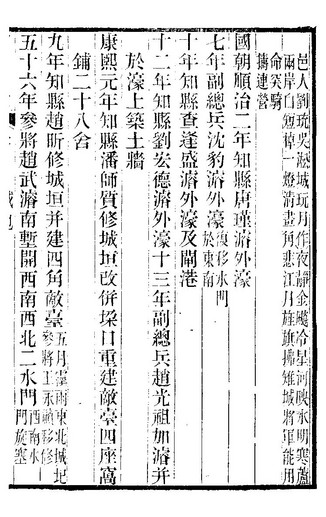 邑人劉琉吳淞城玩月作夜靜金飈冷星河映水明寒蘆
兩岸白短棹一燈清畫角悲江月旌旗擁雉城將軍能用
命突騎
擣連營
國朝順治二年知縣唐瑾濬外濠
七年副總兵沈豹濬外濠復移水門
於東南
十年知縣查逢盛濬外濠及閘港
十二年知縣劉宏德濬外濠十三年副總兵趙光祖加濬并
於濠上築土牆
康熙元年知縣潘師質修城垣改併垜口重建敵臺四座窩
鋪二十八舍
九年知縣趙昕修城垣并建四角敵臺五月霪雨東北城圮
參將王承顯移修
五十六年參將趙武濬南塹開西南西北二水門西南水
門旋塞